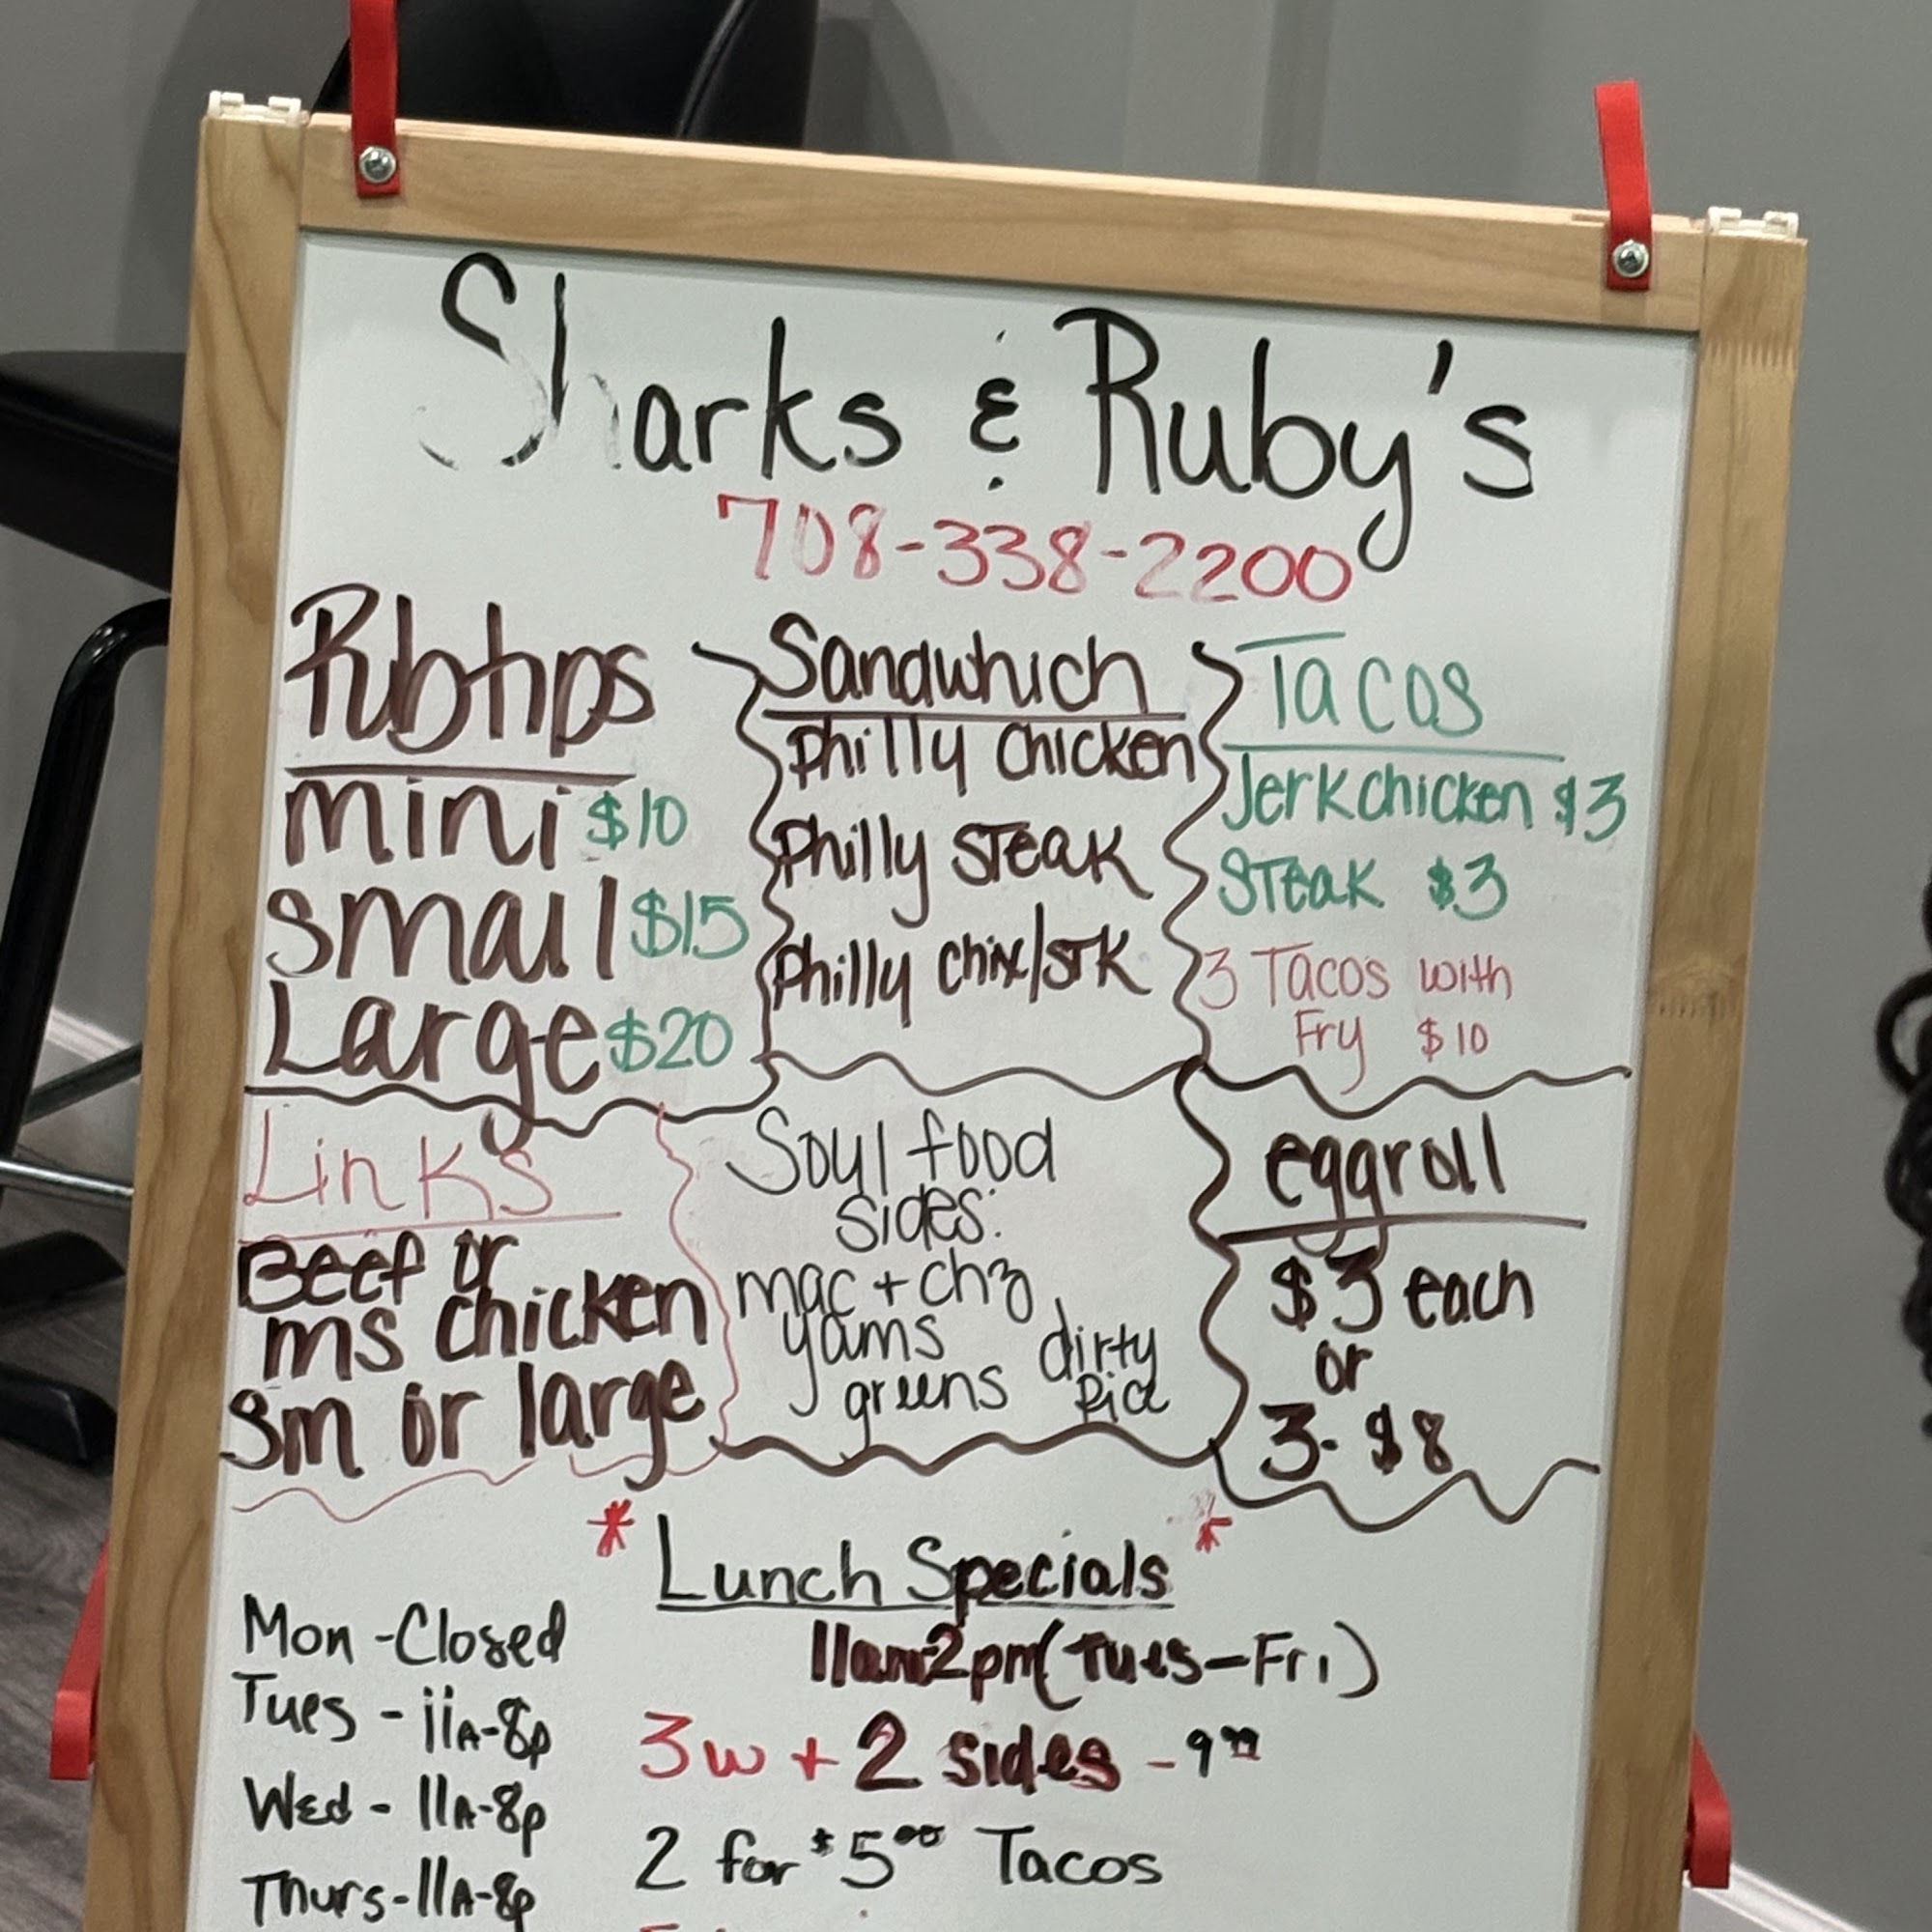 Sharks & Ruby's
708-338-2200
Ribtips
mini $10
small $15
Large $20
Sandwhich
Philly chicken
Philly STeak
Philly chix/STK
Tacos
Jerk chicken $3
STeak $3
3 Tacos with
Fry $10
Links
Beef or
ms chicken
sm or large
Soul food
sides:
mac + chz
yams
greens
dirty
Rice
eggroll
$3 each
or
3- $8
* Lunch Specials *
11am-2pm (Tues-Fri)
3w + 2 sides - 9⁹⁹
2 for $5⁰⁰ Tacos
Mon - Closed
Tues - 11A-8p
Wed - 11A-8p
Thurs - 11A-8p